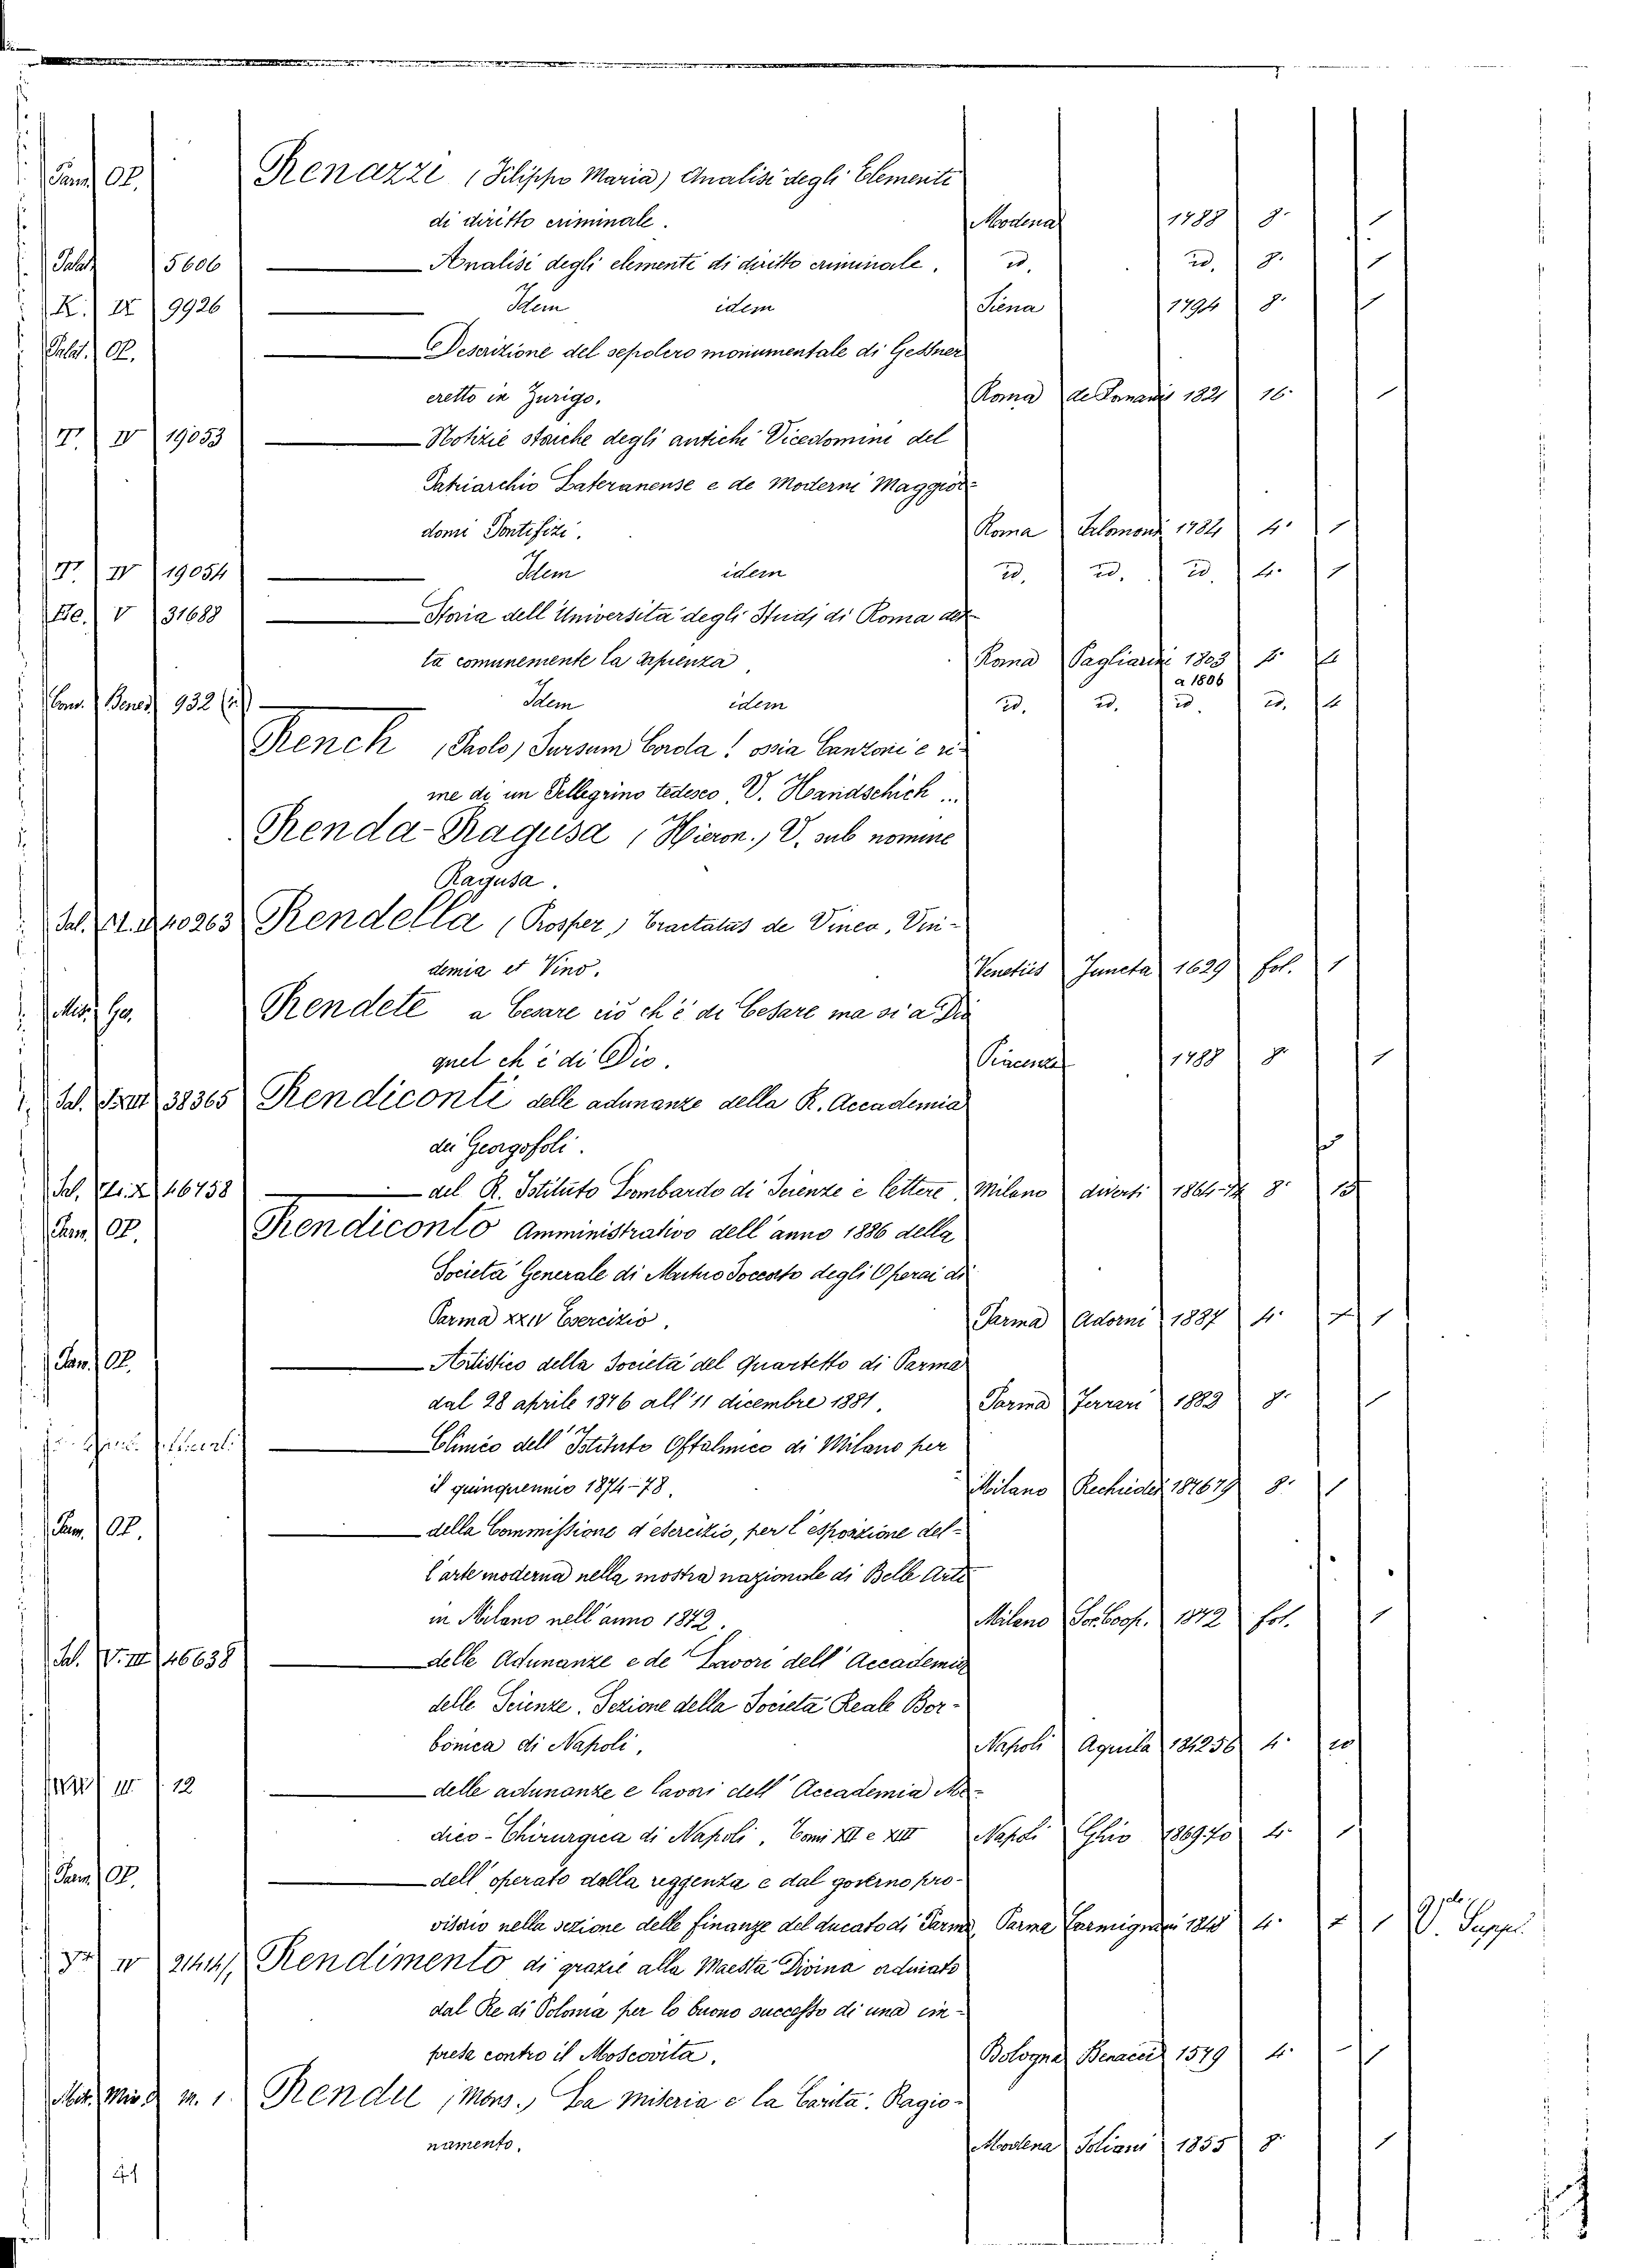 Parm. OP. Renazzi (Filippo Maria) Analisi degli Elementi
di diritto criminale. Modena 1788 8.° 1
Palat. 5606 Analisi degli elementi di diritto criminale. id. id. 8.° 1
K. IX 9926 Idem idem Siena 1794 8.° 1
Palat. OP. Descrizione del sepolcro monumentale di Gessner
eretto in Zurigo. Roma de Romanis 1821 16.° 1
T. IV 19053 Notizie storiche degli antichi Vicedomini del
Patriarchio Lateranense e de Moderni Maggior-
domi Pontifizi. Roma Salomoni 1784 4.° 1
T. IV 19054 Idem idem id. id. id. 4.° 1
V 31688 Storia dell'Università degli Studj di Roma det-
ta comunemente la Sapienza Roma Pagliarini 1803 4
a 1806
Bened. 932 Idem idem id. id. id. id. 4
Rench (Paolo) Sursum Corda! ossia Canzoni e ri-
me di un Pellegrino tedesco V. Handschich...
Renda-Ragusa (Hieron.) V. sub nomine
Ragusa.
Sal. 40263 Rendella (Prosper) Tractatus de Vinea, Vin-
demia et Vino. Venetiis Juncta 1629 fol. 1
Rendete a Cesare ciò ch'è di Cesare ma si a Dio
quel ch'è di Dio. Piacenza 1788 8.° 1
Sal. 38365 Rendiconti delle adunanze della R. Accademia
dei Georgofoli.
Sal. X 46758 del R. Istituto Lombardo di Scienze e lettere. Milano diversi 1864-74 8.° 15
Parm. OP. Rendiconto Amministrativo dell'anno 1886 della
Società Generale di Mutuo Soccorso degli Operai di
Parma XXIV Esercizio. Parma Adorni 1887 4.° 1
Parm. OP. Artistico della Società del Quartetto di Parma
dal 28 aprile 1876 all'11 dicembre 1881. Parma Ferrari 1882 8.° 1
Clinico dell'Istituto Oftalmico di Milano per
il quinquennio 1874-78. Milano Rechiedei 187679 8.° 1
Parm. OP. della Commissione d'esercizio, per l'esposizione del-
l'arte moderna nella mostra nazionale di Belle Arti
in Milano nell'anno 1872. Milano Soc. Coop. 1872 fol. 1
Sal. V. III 46638 delle Adunanze e de' Lavori dell'Accademia
delle Scienze. Sezione della Società Reale Bor-
bonica di Napoli. Napoli Aquila 184256 4.° 10
III 12 delle adunanze e lavori dell'Accademia Me-
dico-Chirurgica di Napoli. Tomi XII e XIII Napoli Ghio 1869.70 4.° 1
Parm. OP. dell'operato dalla reggenza e dal governo prov-
visorio nella sezione delle finanze del ducato di Parma Parma Carmignani 1848 4.° 1 V. Suppl.
IV Rendimento di grazie alla Maestà Divina ordinato
dal Re di Polonia per lo buono successo di una im-
presa contro il Moscovita. Bologna Benacci 1579 4.° 1
M. 1. Rendu (Mons.) La miseria e la Carità. Ragio-
namento. Modena Soliani 1855 8.° 1
41